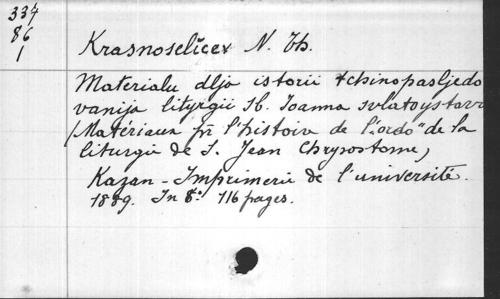 337
86
1
Krasnoselîcev N. Th.
Materialu dlja istorii tchinopasljedo
vanija liturgii sb. Ioanna svlatoystava
(Matériaux pr l'histoire de l'"ordo" de la
liturgie de S. Jean Chrysostome,
Kazan - Imprimerie de l'université.
1889. In 8.° 116 pages.